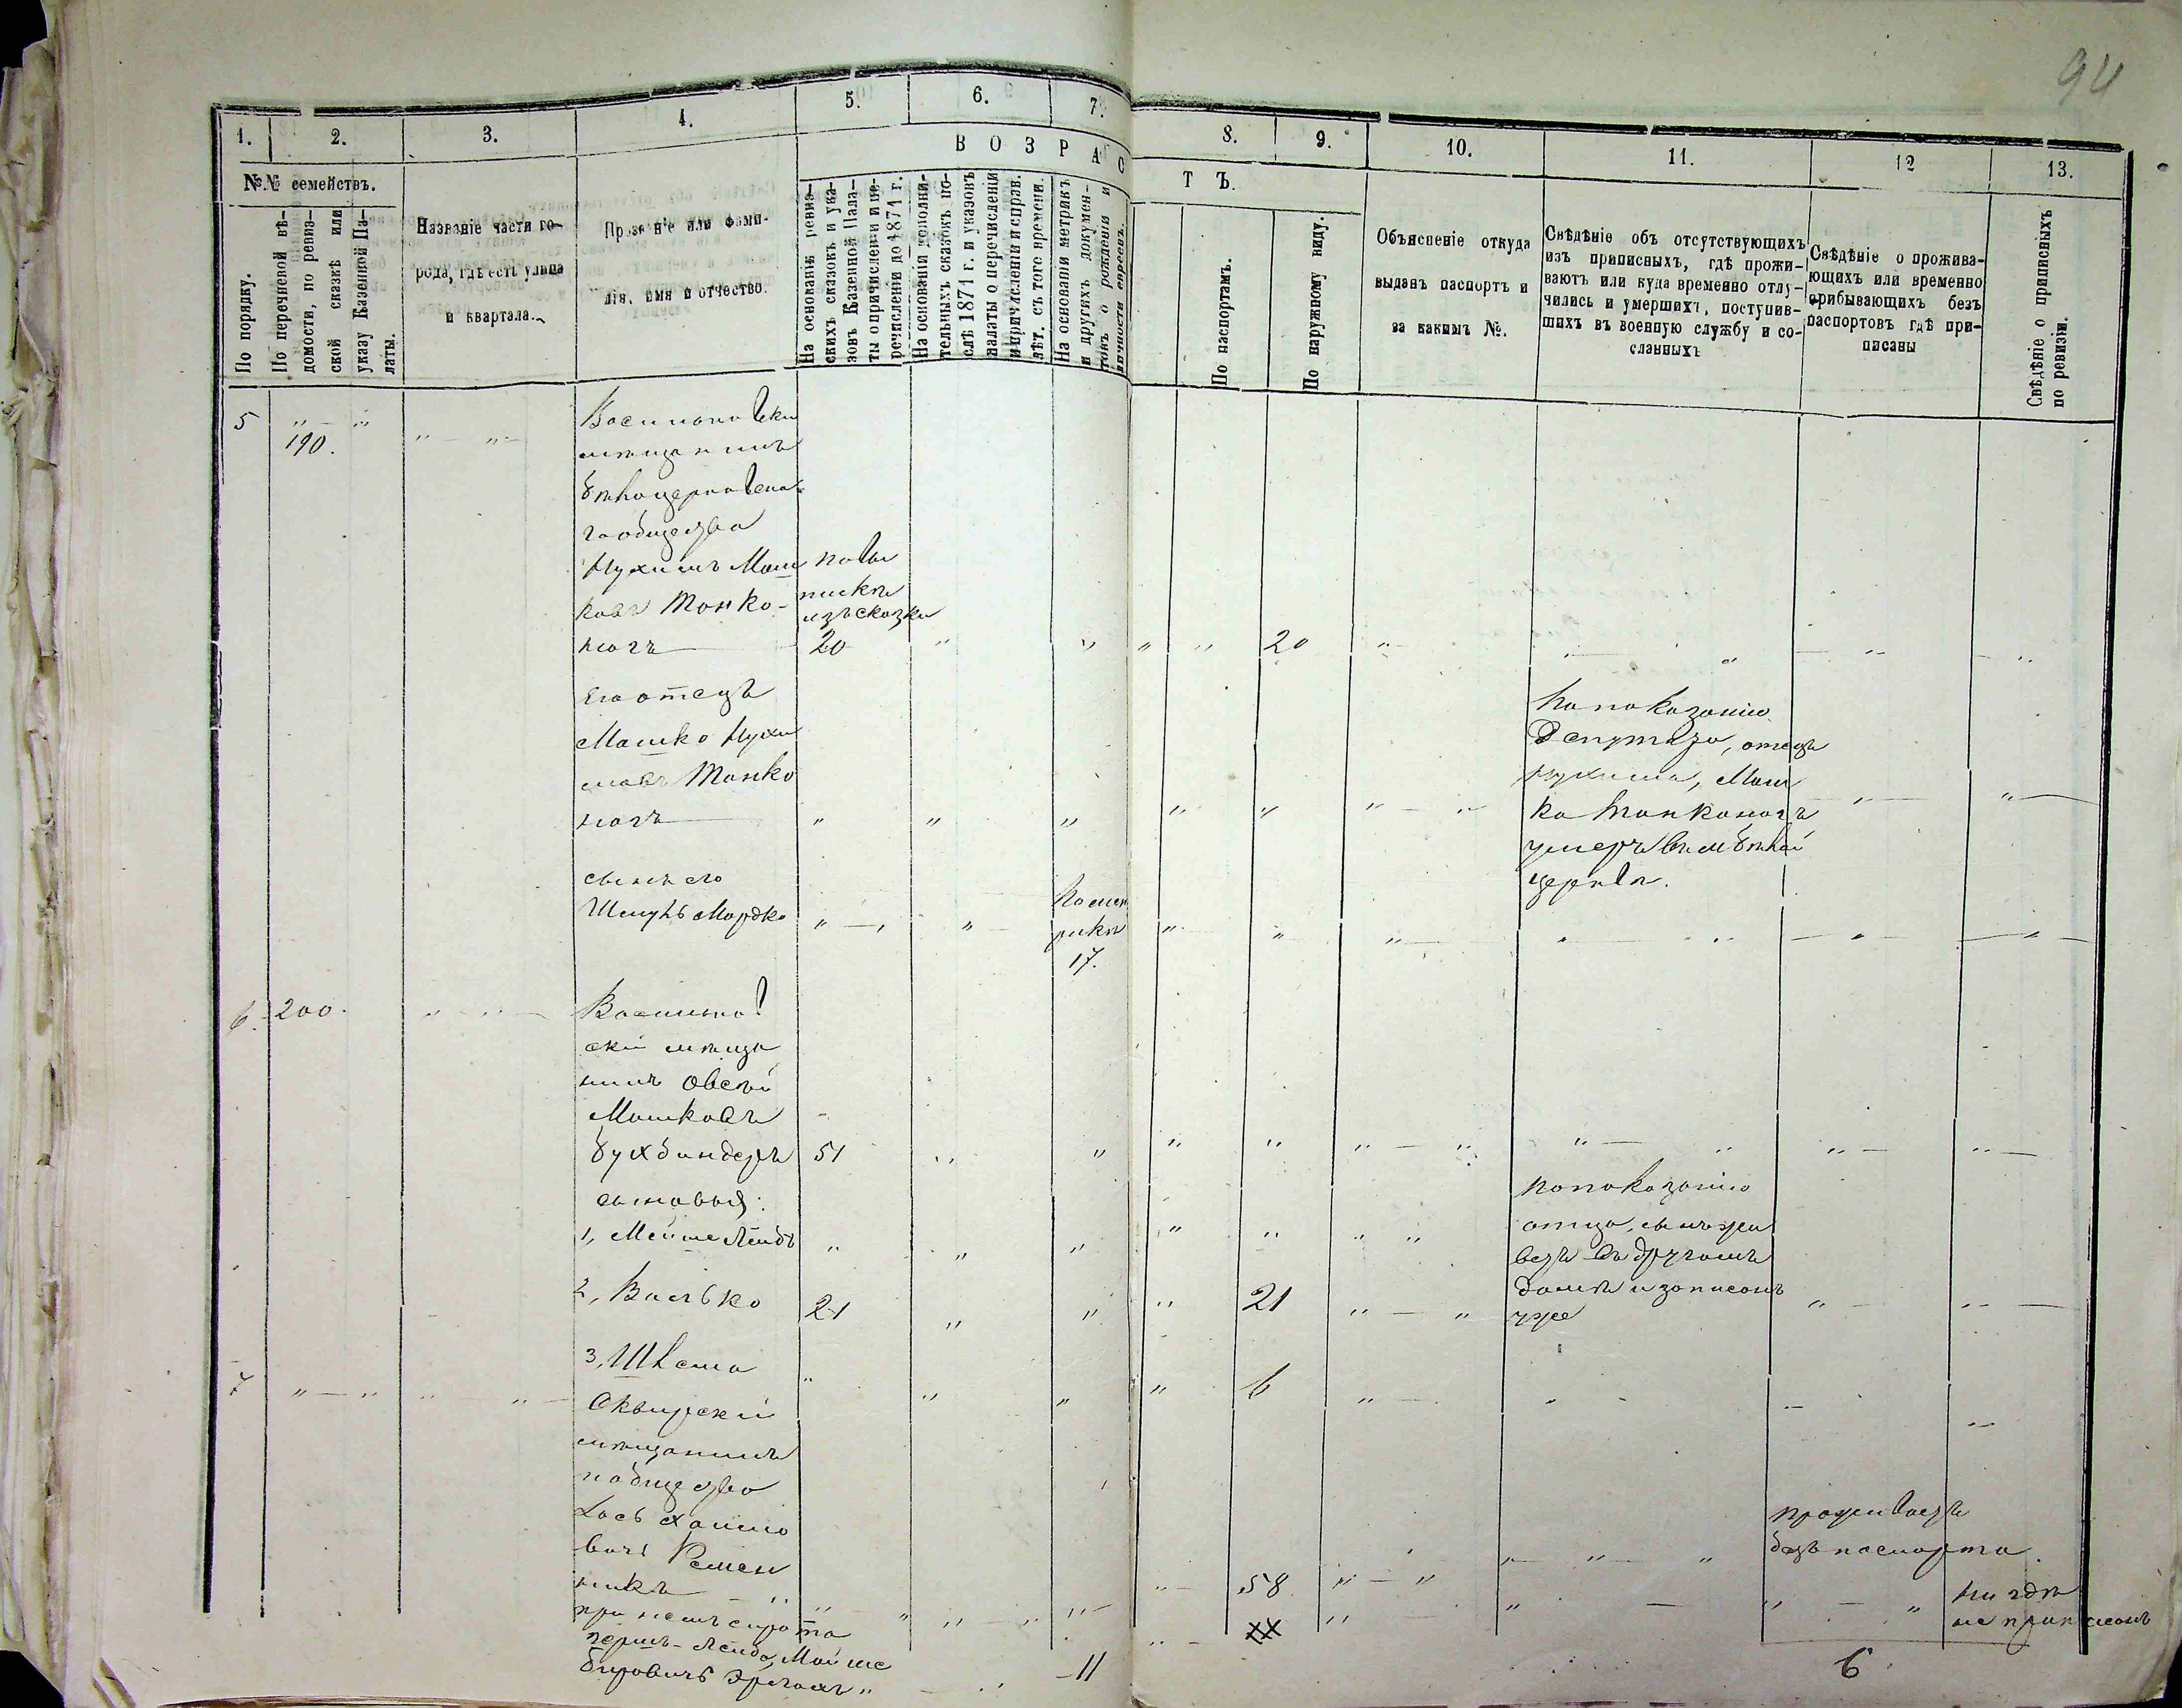 94
1. 2. 3. 4. 5. 6. 7. 8. 9. 10. 11. 12 13.
В О З Р А С Т Ъ.
№№ семействъ.
По порядку.
По перечневой вѣ-
домости, по ревиз-
ской сказкѣ или
указу Казенной Па-
латы.
Названіе части го-
рода, гдѣ есть улица
и квартала.
Прозваніе или фами-
лія, имя и отчество.
На основаніи ревиз-
скихъ сказокъ и ука-
зовъ Казенной Пала-
ты о причисленіи и пе-
речисленіи до 1871 г.
На основаніи дополни-
тельныхъ сказокъ по-
слѣ 1871 г. и указовъ
палаты о перечисленіи
и причисленіи и справ.
лѣт. съ того времени.
На основаніи метрикъ
и другихъ докумен-
товъ о рожденіи и
личности евреевъ.
По паспортамъ.
По наружному виду.
Объясненіе откуда
выданъ паспортъ и
за какимъ №.
Свѣдѣніе объ отсутствующихъ
изъ приписныхъ, гдѣ прожи-
ваютъ или куда временно отлу-
чились и умершихъ, поступив-
шихъ въ военную службу и со-
сланныхъ
Свѣдѣніе о прожива-
ющихъ или временно
прибывающихъ безъ
паспортовъ гдѣ при-
писаны
Свѣдѣніе о приписныхъ
по ревизіи.
5 190.
мѣщанинъ
бѣлоцерковска-
го общества
Нухимъ Маш
ковъ Тонко-
ногъ
по вы
пискѣ
изъ сказки
20 20
Его отецъ
Машко Нухи
мовъ Тонко
ногъ
По показанію
Депутата, отецъ
Нухима, Маш
ко Тонконогъ
умеръ въ м Бѣлой
церкви.
сынъ его
Шмуль Мордко
По мет
рикѣ
17.
6. 200.
Василько
скій мѣща
нинъ Овсѣй
Машковъ
Бухбиндеръ 51
сыновья:
1, Мейше Лейбъ
По показанію
отца, сынъ жи
ветъ въ другомъ
домѣ и записанъ
уже
2, Васько 21 21
3, Шлема 6
7
Сквирскій
мѣщанинъ
общество
Хаимо
вичъ
никъ 58
проживаетъ
безъ паспорта
при немъ сирота
Лейба, Мойше
Беровичъ
11 XX
ни гдѣ
не приписанъ
6